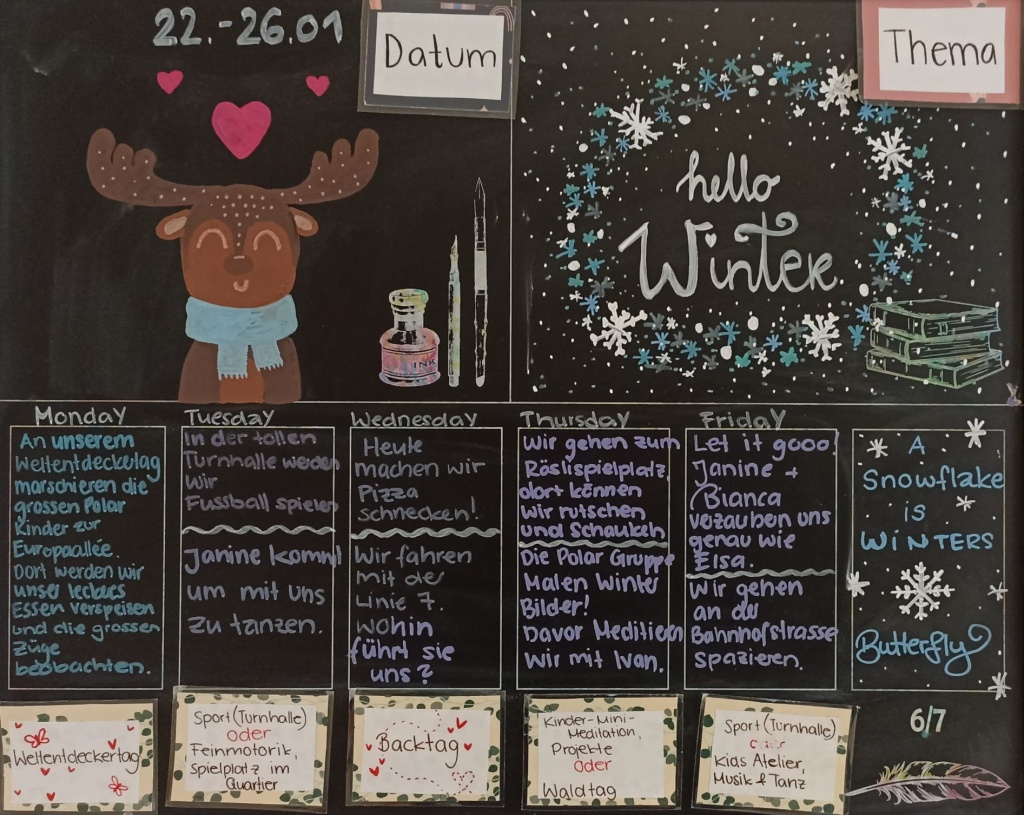 22.-26.01
Datum
Thema
hello
Winter
INK
Monday
An unserem
Weltentdeckertag
marschieren die
grossen Polar
Kinder zur
Europaallée.
Dort werden wir
unser leckeres
Essen verspeisen
und die grossen
Züge
beobachten.
Tuesday
In der tollen
Turnhalle werden
Wir
Fussball spielen
Janine kommt
um mit uns
zu tanzen.
Wednesday
Heute
machen wir
Pizza
schnecken!
Wir fahren
mit der
Linie 7.
wohin
führt sie
uns?
Thursday
Wir gehen zum
Röslispielplatz,
dort können
wir rutschen
und Schaukeln
Die Polar Gruppe
Malen Winter
Bilder!
Davor Meditieren
Wir mit Ivan.
Friday
Let it gooo!
Janine +
Bianca
vezauben uns
genau wie
Elsa.
Wir gehen
an der
Bahnhofstrasse
spazieren.
A
Snowflake
is
WiNTERS
Butterfly
Weltentdeckertag
Sport (Turnhalle)
oder
Feinmotorik,
Spielplatz im
Quartier
Backtag
Kinder-Mini-
Meditation,
Projekte
oder
Waldtag
Sport (Turnhalle)
oder
Kids Atelier,
Musik & Tanz
6/7